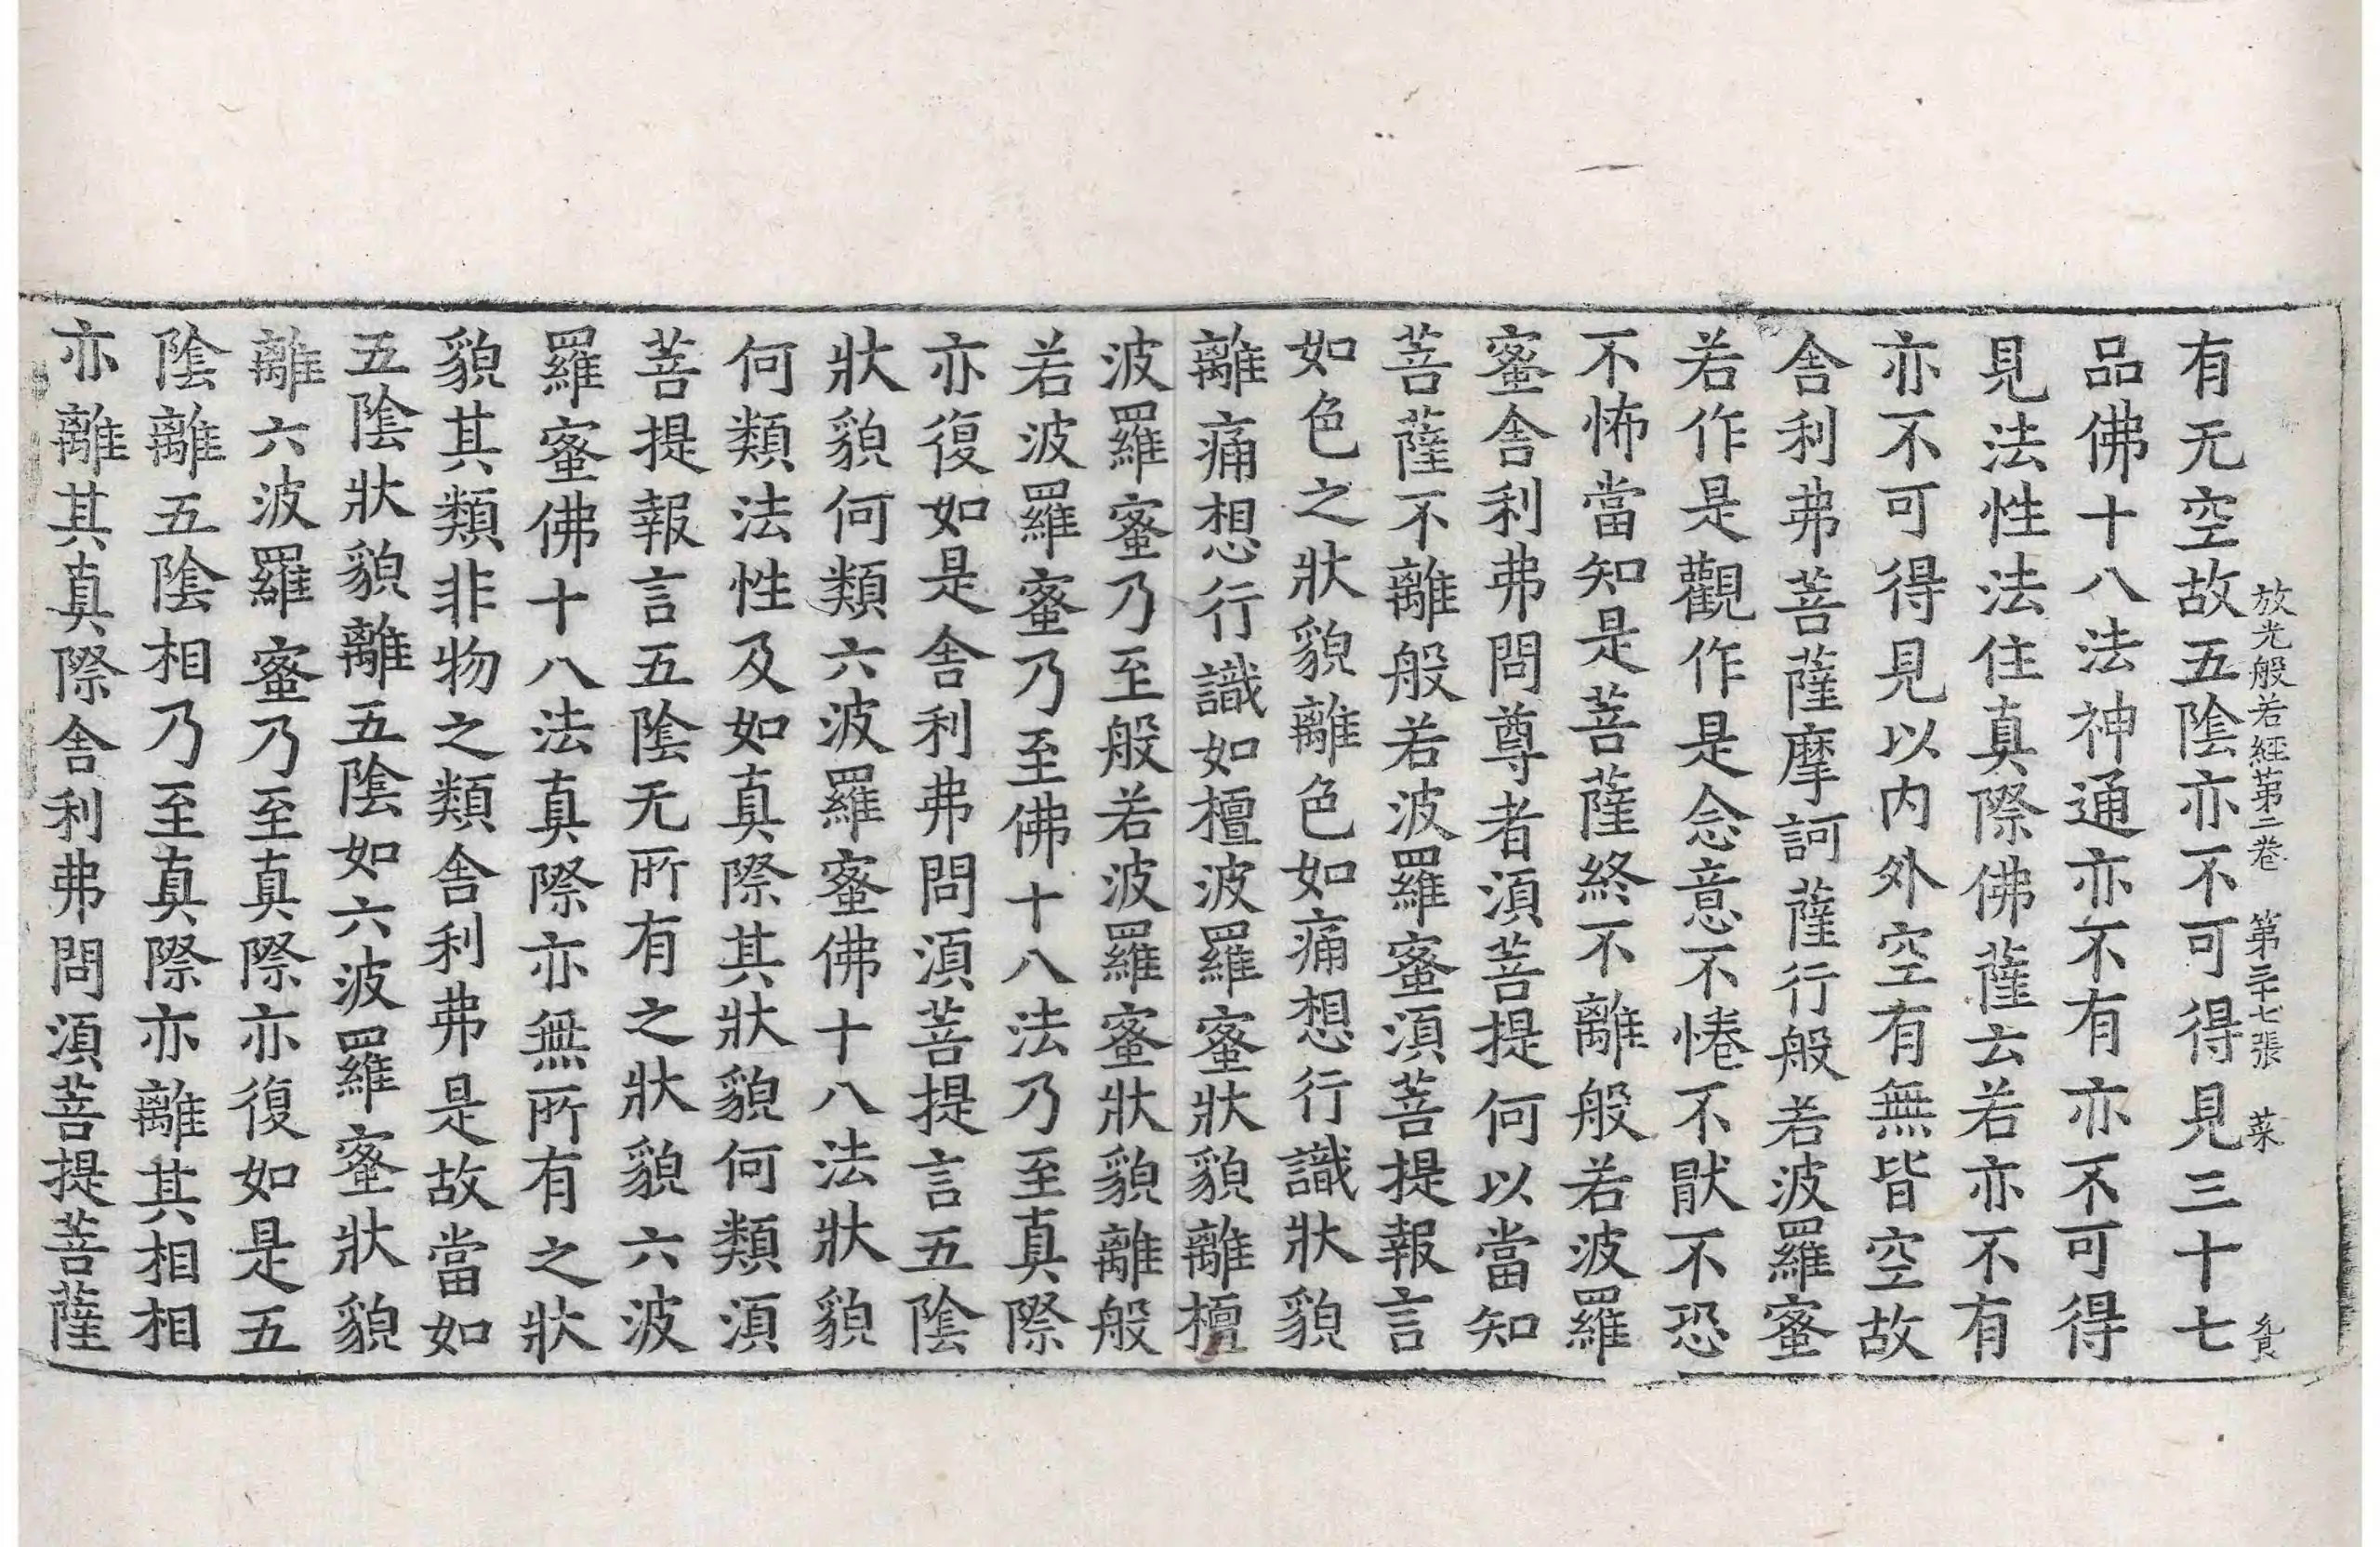 放光般若經第二卷 第二十七張 菜
有无空故五陰亦不可得見三十七
品佛十八法神通亦不有亦不可得
見法性法住真際佛薩云若亦不有
亦不可得見以内外空有無皆空故
舍利弗菩薩摩訶薩行般若波羅蜜
若作是觀作是念意不惓不猒不恐
不怖當知是菩薩終不離般若波羅
蜜舍利弗問尊者湏菩提何以當知
菩薩不離般若波羅蜜湏菩提報言
如色之狀貌離色如痛想行識狀貌
離痛想行識如檀波羅蜜狀貌離檀
波羅蜜乃至般若波羅蜜狀貌離般
若波羅蜜乃至佛十八法乃至真際
亦復如是舍利弗問湏菩提言五陰
狀貌何類六波羅蜜佛十八法狀貌
何類法性及如真際其狀貌何類湏
菩提報言五陰无所有之狀貌六波
羅蜜佛十八法真際亦無所有之狀
貌其類非物之類舍利弗是故當如
五陰狀貌離五陰如六波羅蜜狀貌
離六波羅蜜乃至真際亦復如是五
陰離五陰相乃至真際亦離其相相
亦離其真際舍利弗問湏菩提菩薩